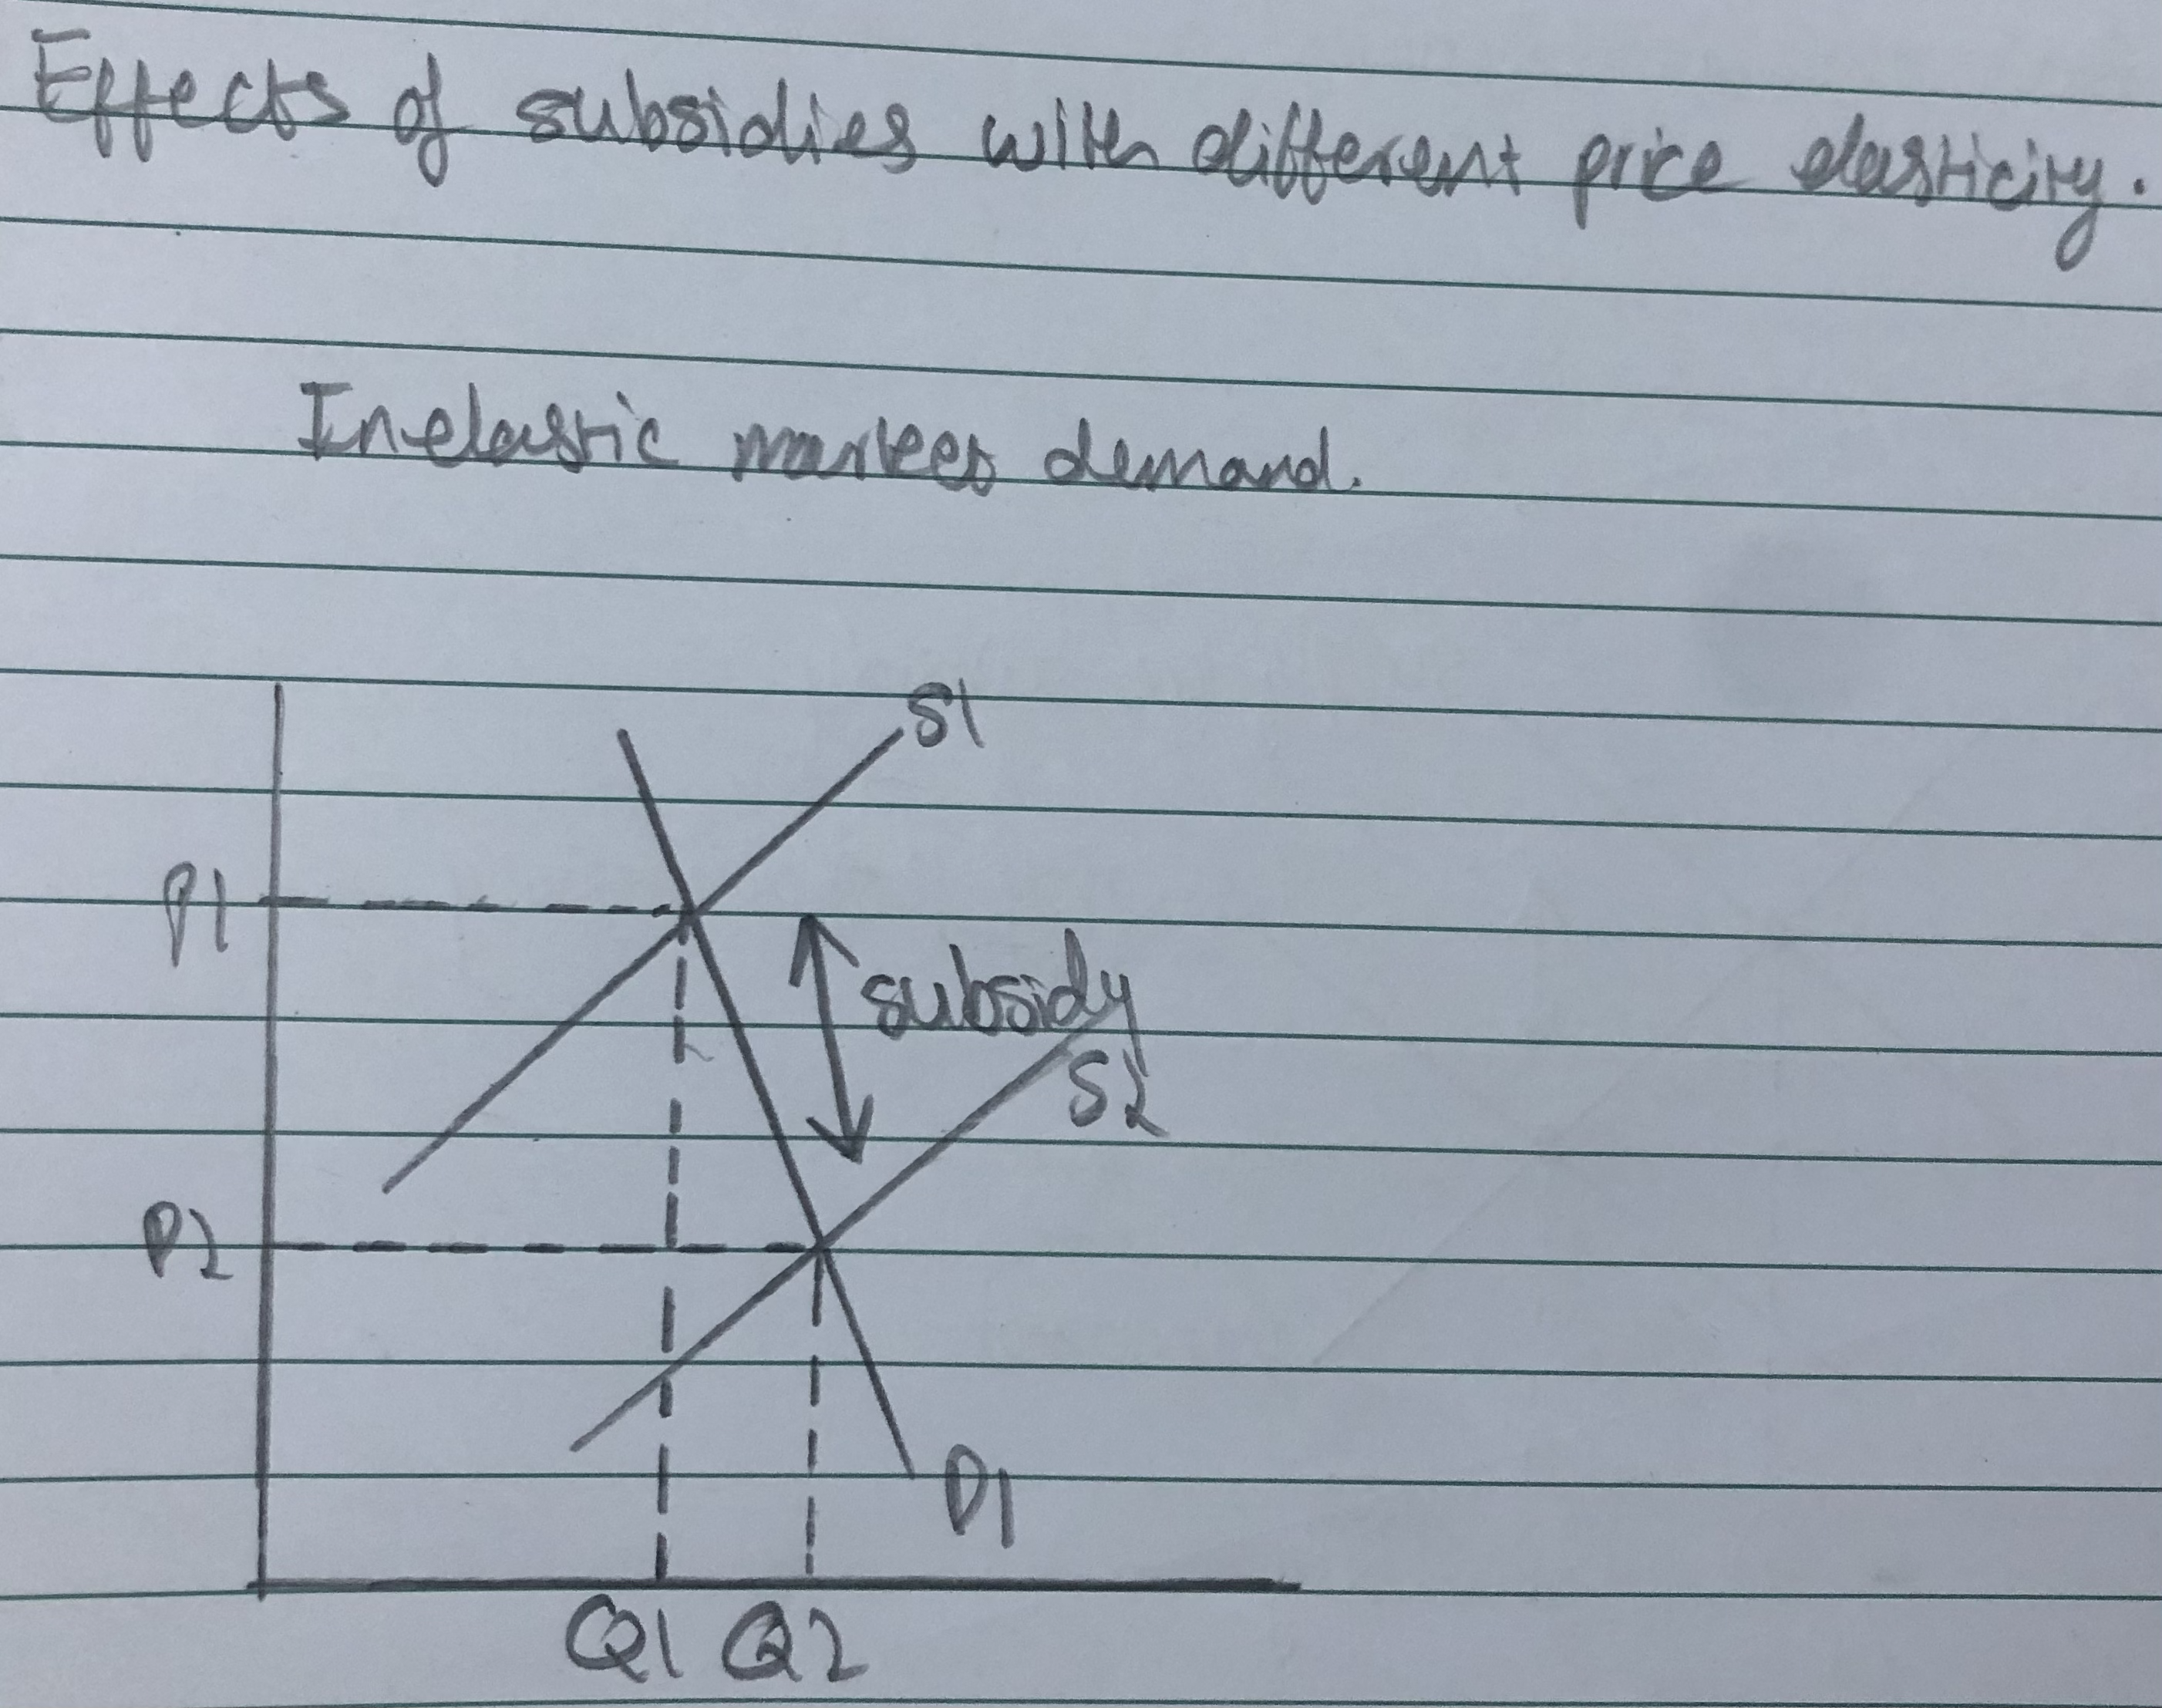 Effects of subsidies with different price elasticity.
Inelastic market demand.
S1
P1
subsidy
S2
P2
D1
Q1 Q2